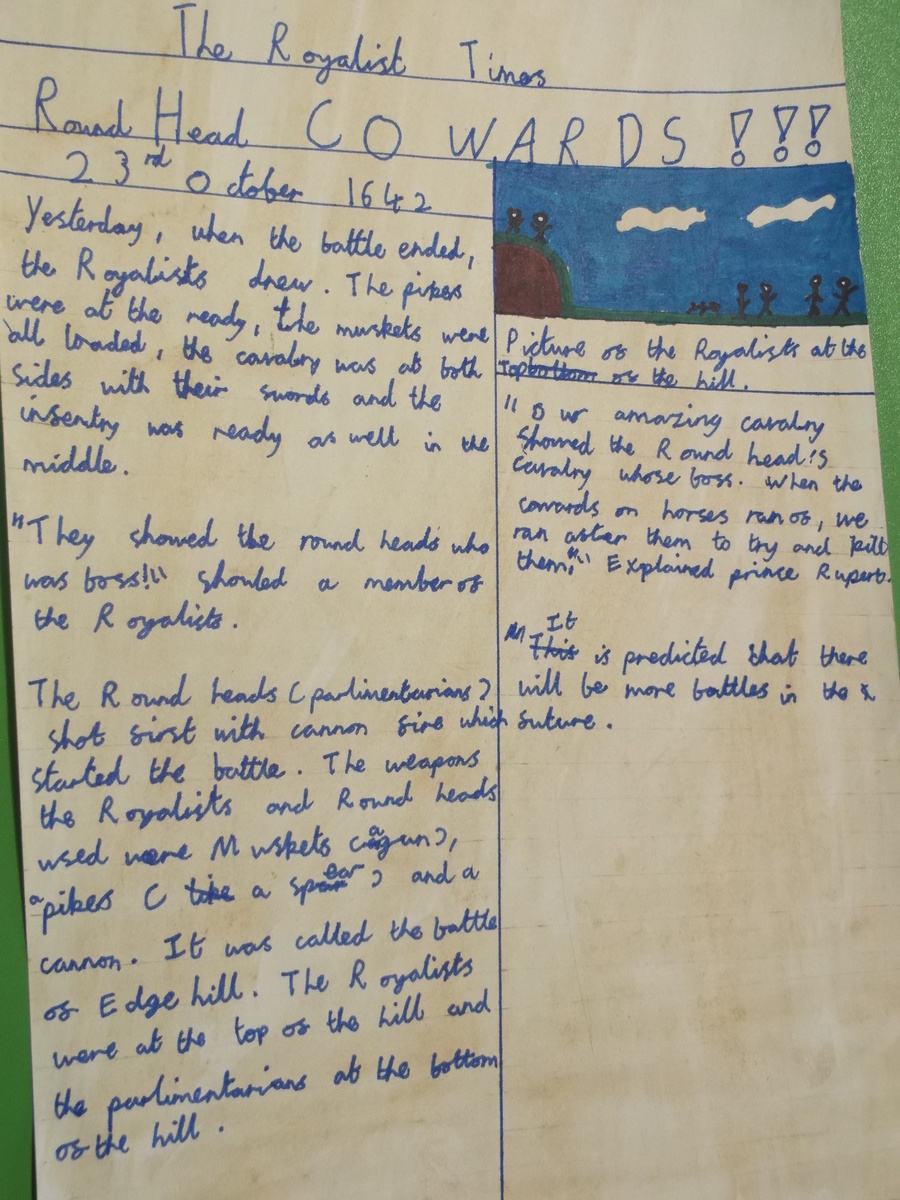 The Royalist Times
Round Head COWARDS!!!
23rd October 1642
Yesterday, when the battle ended,
the Royalists drew. The pikes
were at the ready, the muskets were
all loaded, the cavalry was at both
sides with their swords and the
infentry was ready as well in the
middle.
"They showed the round heads who
was boss!" shouted a member of
the Royalists.
The Round heads (parlimentarians)
shot first with cannon fire which
started the battle. The weapons
the Royalists and Round heads
used were Muskets (a gun),
a pikes ( like a spear ) and a
cannon. It was called the battle
of Edge hill. The Royalists
were at the top of the hill and
the parlimentarians at the bottom
of the hill.
Picture of the Royalists at the
top bottom of the hill.
"Our amazing cavalry
showed the Round head's
cavalry whose boss. When the
cowards on horses ran of, we
ran after them to try and kill
them," Explained prince Rupert.
It
This is predicted that there
will be more battles in the
future.